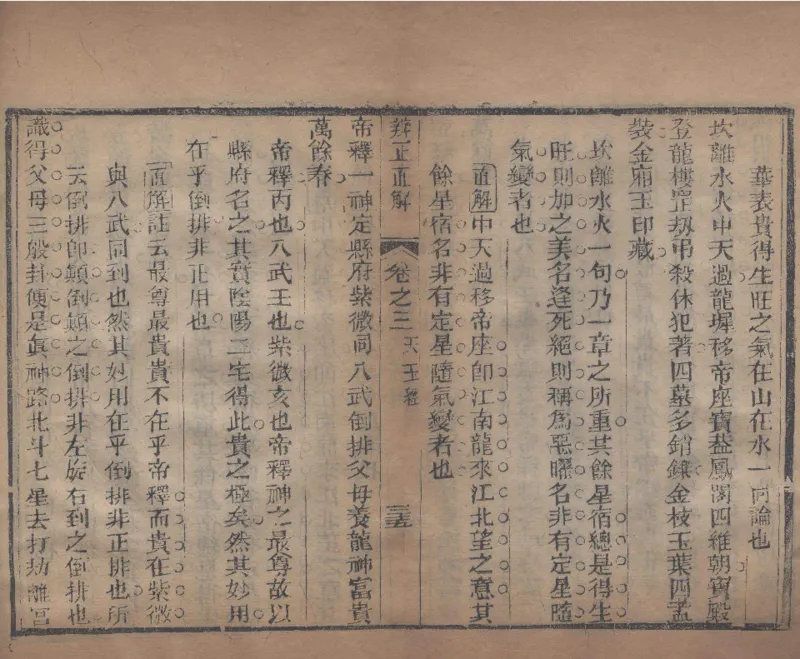 華表貴得生旺之氣在山在水一同論也
坎離水火中天過龍墀移帝座寶蓋鳳閣四維朝寶殿
登龍樓罡刼弔殺休犯著四墓多銷鑠金枝玉葉四孟
裝金廂玉印藏
坎離水火一句乃一章之所重其餘星宿總是得生
旺則加之美名逢死絕則稱為惡曜名非有定星隨
氣變者也
直解中天過移帝座卽江南龍來江北望之意其
餘星宿名非有定星隨氣變者也
辨正直解
卷之三
天玉經
三五
帝釋一神定縣府紫微同八武倒排父母養龍神富貴
萬餘春
帝釋丙也八武壬也紫微亥也帝釋神之最尊故以
縣府名之其實陰陽二宅得此貴之極矣然其妙用
在乎倒排非正用也
直解註云最尊最貴貴不在乎帝釋而貴在紫微
與八武同到也然其妙用在乎倒排非正排也所
云倒排卽顛倒顛之倒排非左旋右到之倒排也
識得父母三般卦便是眞神路北斗七星去打刼離宮